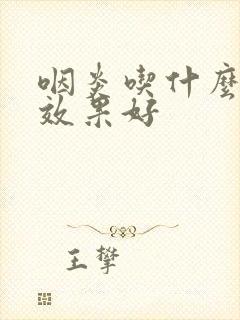 咽炎喫什麼
效果好
王攀